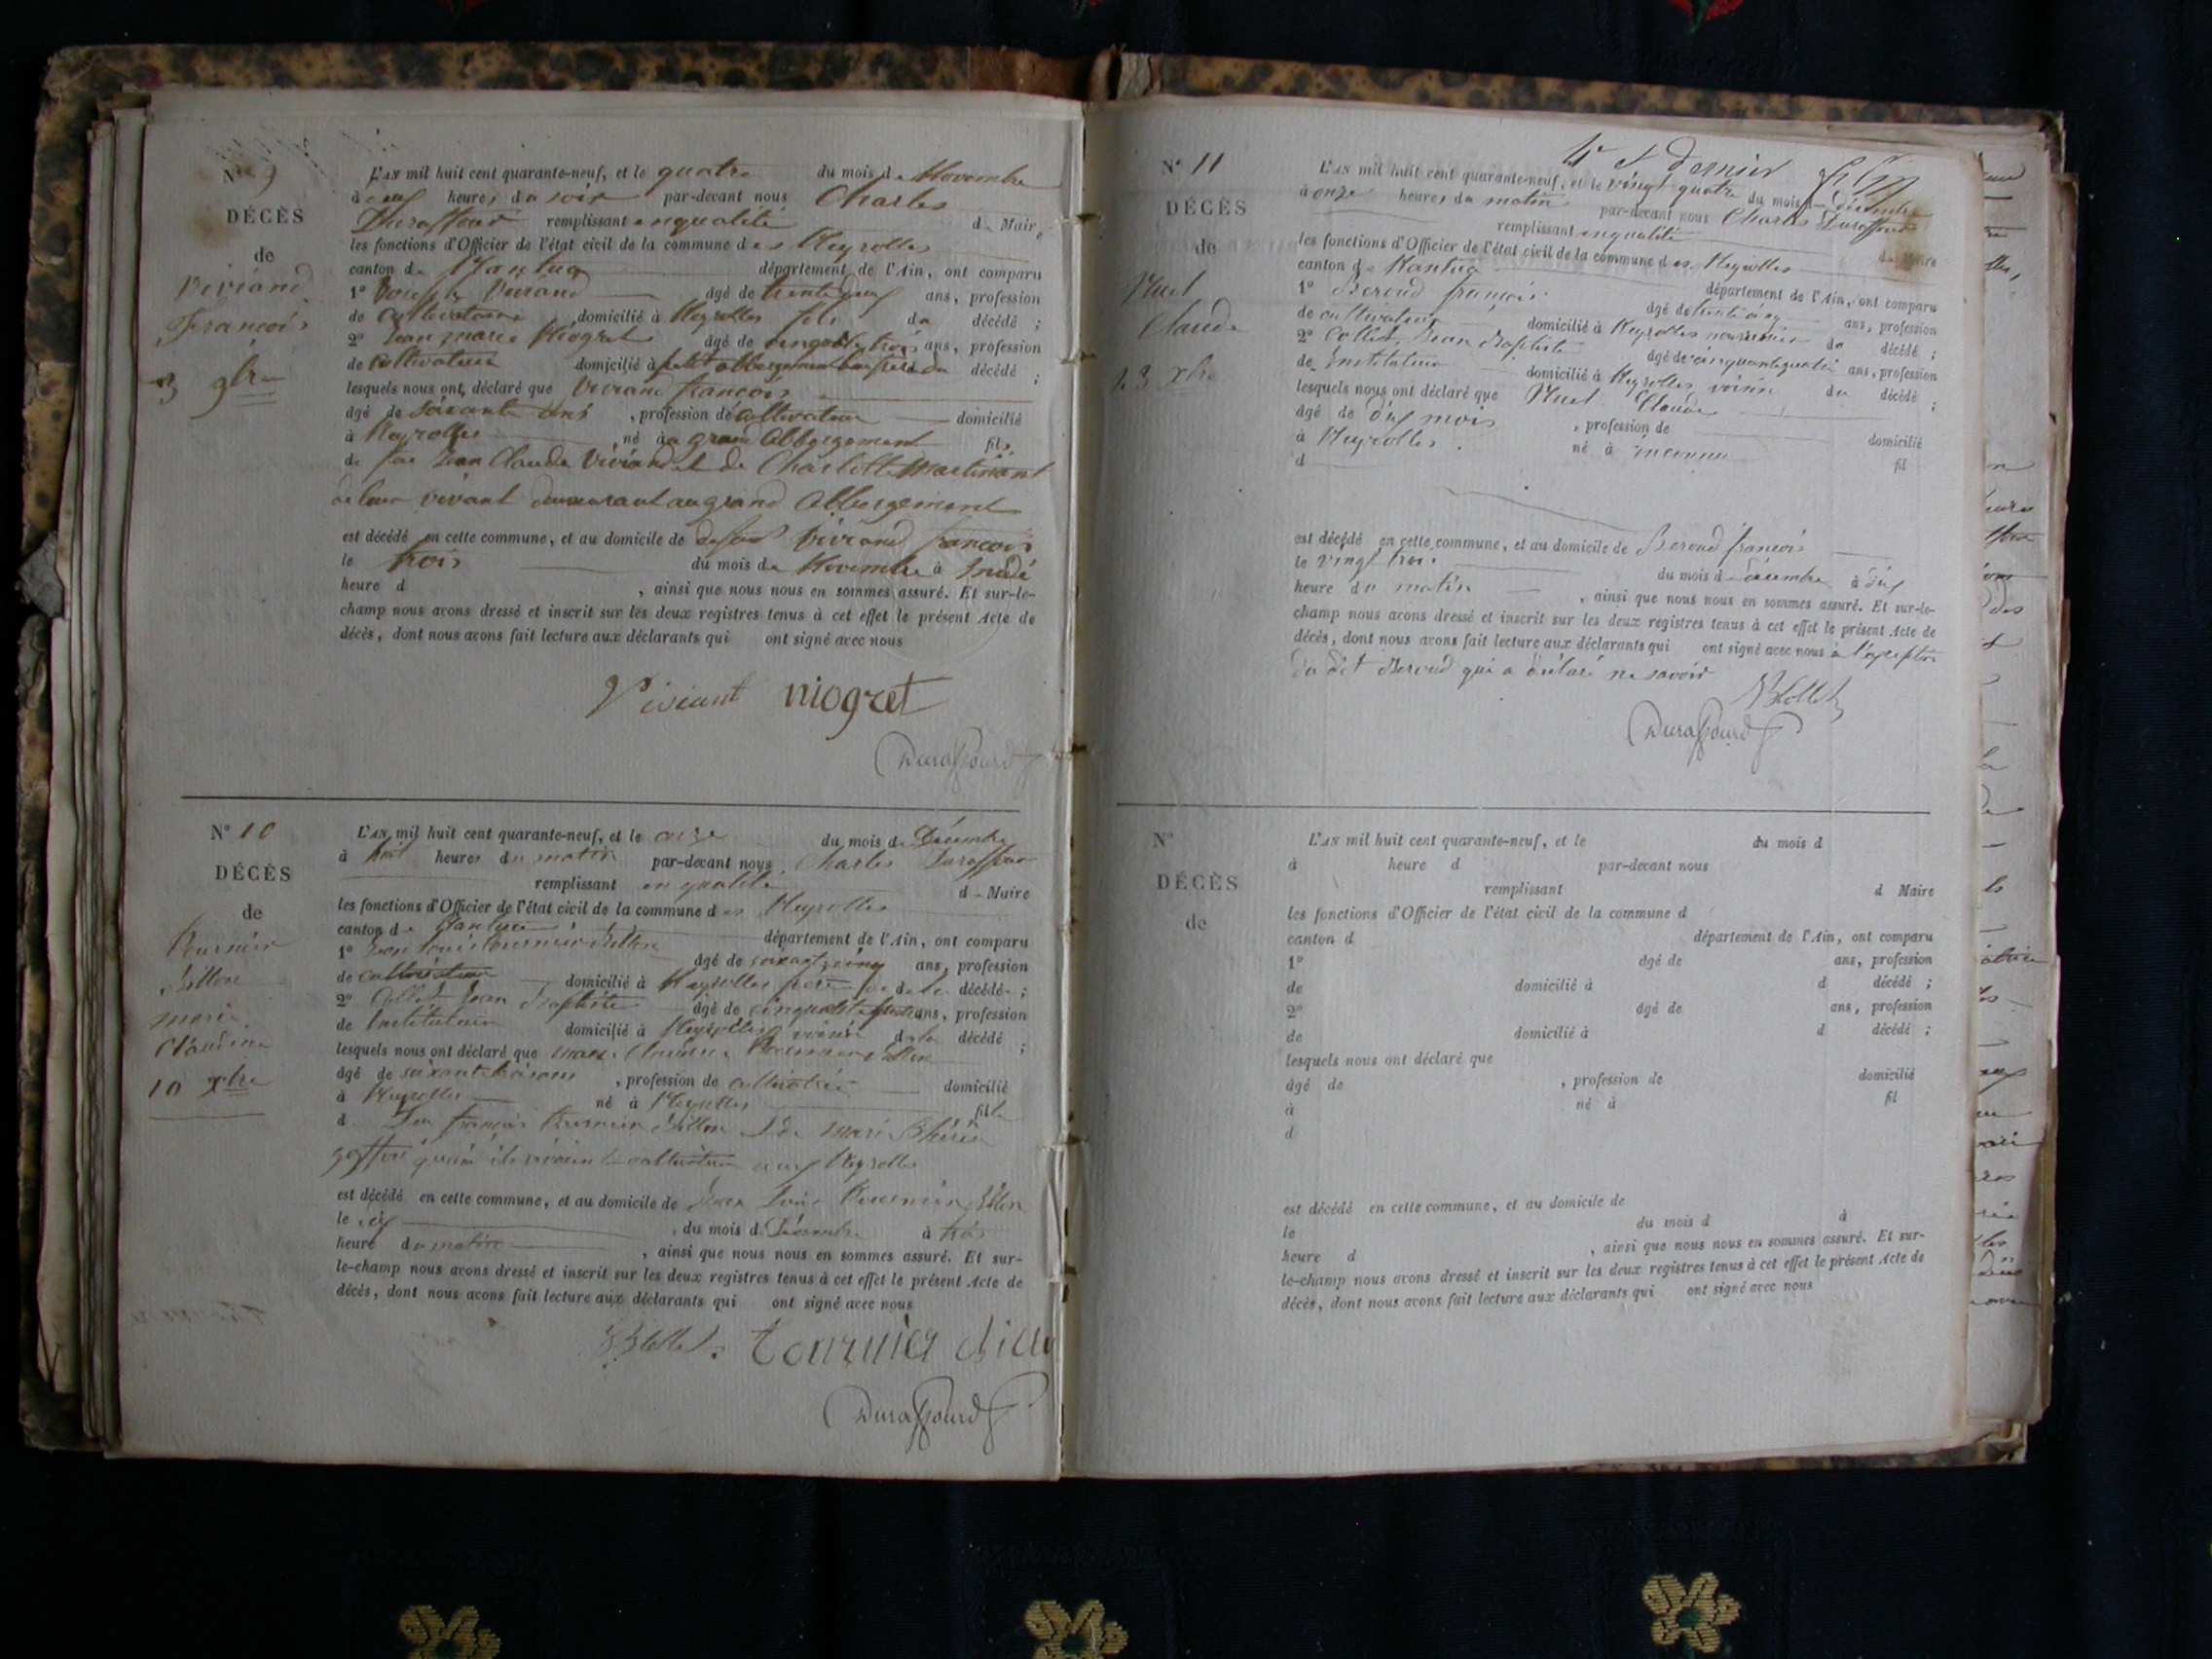 N° 9
DÉCÈS
de
Viviand
François
3 9bre
L'AN mil huit cent quarante-neuf, et le quatre du mois de Novembre
à neuf heures du soir par-devant nous Charles
Duraffourd remplissant en qualité de Maire
les fonctions d'Officier de l'état civil de la commune des Neyrolles
canton de Nantua département de l'Ain, ont comparu
1° Viviand âgé de trente ans, profession
de cultivateur domicilié à Neyrolles fils du décédé ;
2° Jean marie Niogret âgé de ans, profession
de cultivateur domicilié à petit abbergement du décédé ;
lesquels nous ont déclaré que Viviand françois
âgé de soixante ans, profession de cultivateur domicilié
à Neyrolles né au grand Abbergement fils
de feu Jean Claude Viviand et de Charlotte Martinand
de leur vivant demeurant au grand Abbergement
est décédé en cette commune, et au domicile de défunt Viviand françois
le trois du mois de Novembre à
heure d , ainsi que nous nous en sommes assuré. Et sur-le-
champ nous avons dressé et inscrit sur les deux registres tenus à cet effet le présent Acte de
décès, dont nous avons fait lecture aux déclarants qui ont signé avec nous
Viviant niogret
Duraffourd
N° 10
DÉCÈS
de
Tournier
Billon
marie
Claudine
10 Xbre
L'AN mil huit cent quarante-neuf, et le onze du mois de Décembre
à huit heures du matin par-devant nous Charles Duraffourd
remplissant en qualité de Maire
les fonctions d'Officier de l'état civil de la commune des Neyrolles
canton de Nantua département de l'Ain, ont comparu
1° Jean Louis Tournier Billon âgé de soixante cinq ans, profession
de cultivateur domicilié à Neyrolles frère de la décédée ;
2° Collet Jean Baptiste âgé de cinquante quatre ans, profession
de Instituteur domicilié à Neyrolles voisin de la décédé ;
lesquels nous ont déclaré que marie Claudine Tournier Billon
âgé de soixante trois ans, profession de cultivatrice domicilié
à Neyrolles né à Neyrolles fille
de feu françois Tournier Billon et de marie
cultivateur aux Neyrolles
est décédé en cette commune, et au domicile de Jean Louis Tournier Billon
le dix du mois de Décembre à trois
heure du matin , ainsi que nous nous en sommes assuré. Et sur-
le-champ nous avons dressé et inscrit sur les deux registres tenus à cet effet le présent Acte de
décès, dont nous avons fait lecture aux déclarants qui ont signé avec nous
Tournier
Duraffourd
et dernier
N° 11
DÉCÈS
de
Huet
Claude
23 Xbre
L'AN mil huit cent quarante-neuf, et le vingt quatre du mois de décembre
à onze heures du matin par-devant nous Charles Duraffourd
remplissant en qualité de Maire
les fonctions d'Officier de l'état civil de la commune des Neyrolles
canton de Nantua département de l'Ain, ont comparu
1° Beroud françois âgé de trente cinq ans, profession
de cultivateur domicilié à Neyrolles nourricier du décédé ;
2° Collet Jean Baptiste âgé de cinquante quatre ans, profession
de Instituteur domicilié à Neyrolles voisin du décédé ;
lesquels nous ont déclaré que Huet Claude
âgé de dix mois, profession de domicilié
à Neyrolles né à inconnu fil
d
est décédé en cette commune, et au domicile de Beroud françois
le vingt trois du mois de décembre à dix
heure du matin , ainsi que nous nous en sommes assuré. Et sur-le-
champ nous avons dressé et inscrit sur les deux registres tenus à cet effet le présent Acte de
décès, dont nous avons fait lecture aux déclarants qui ont signé avec nous à l'exception
du dit Beroud qui a déclaré ne savoir
Duraffourd
N°
DÉCÈS
de
L'AN mil huit cent quarante-neuf, et le du mois d
à heure d par-devant nous
remplissant d Maire
les fonctions d'Officier de l'état civil de la commune d
canton d département de l'Ain, ont comparu
1° âgé de ans, profession
de domicilié à d décédé ;
2° âgé de ans, profession
de domicilié à d décédé ;
lesquels nous ont déclaré que
âgé de , profession de domicilié
à né à fil
d
est décédé en cette commune, et au domicile de
le du mois d à
heure d , ainsi que nous nous en sommes assuré. Et sur-
le-champ nous avons dressé et inscrit sur les deux registres tenus à cet effet le présent Acte de
décès, dont nous avons fait lecture aux déclarants qui ont signé avec nous